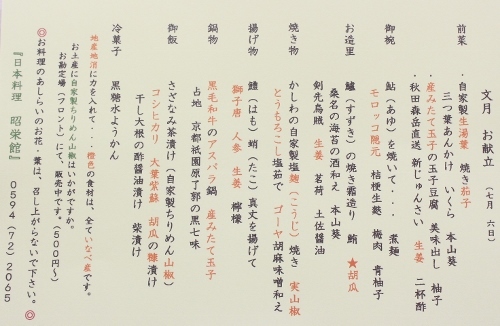 文月　お献立　（七月　六日）
前菜　・自家製生湯葉　焼き茄子
三つ葉あんかけ　いくら　本山葵
・産みたて玉子の玉子豆腐　美味出し　柚子
・秋田森岳直送　新じゅんさい　生姜　二杯酢
御椀　鮎（あゆ）を焼いて・・・　煮麺
モロッコ隠元　桔梗生麩　梅肉　青柚子
お造里　鱸（すずき）の焼き霜造り　鮪　★胡瓜
桑名の海苔の酒和え　本山葵
剣先烏賊　生姜　茗荷　土佐醤油
焼き物　かしわの自家製塩麹（こうじ）焼き　実山椒
とうもろこし塩茹で　ゴーヤ胡麻味噌和え
揚げ物　鱧（はも）と蛸（たこ）真丈を揚げて
獅子唐　人参　生姜　檸檬
鍋物　黒毛和牛のアスパラ鍋　産みたて玉子
占地　京都祇園原了郭の黒七味
御飯　さざなみ茶漬け（自家製ちりめん山椒）
コシヒカリ　大葉紫蘇　胡瓜の糠漬け
干し大根の酢醤油漬け　柴漬け
冷菓子　黒糖水ようかん
地産地消に力を入れて・・・橙色の食材は、全ていなべ産です。
お土産に自家製ちりめん山椒はいかがですか。
お勘定場（フロント）にて、販売中です。（５００円～）
◎お料理のあしらいのお花・葉は、召し上がらないで下さい。◎
『日本料理　昭栄館』　０５９４（７２）２０６５